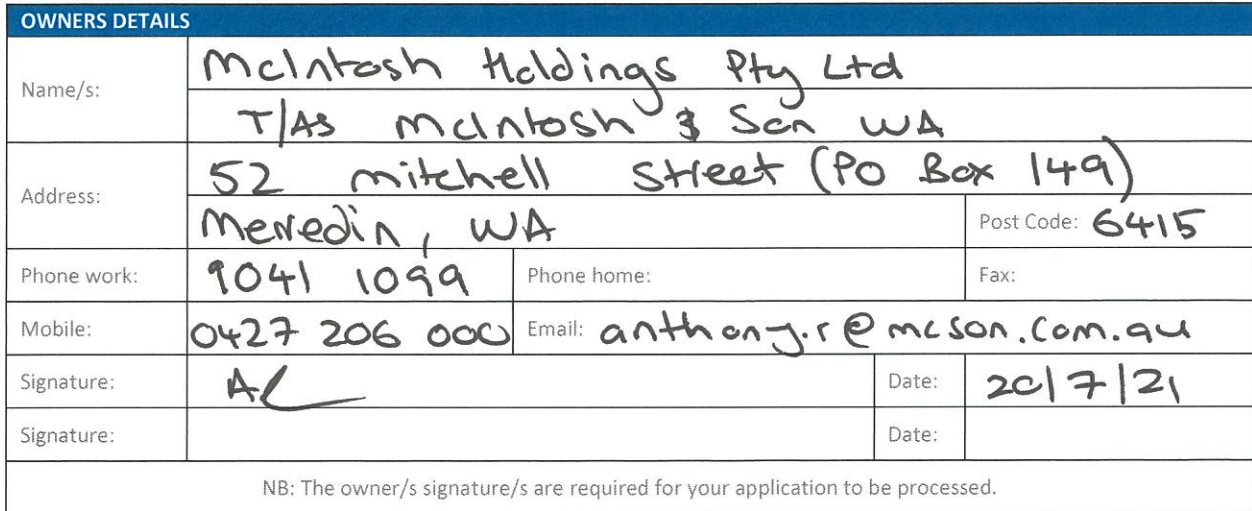 OWNERS DETAILS
Name/s: McIntosh Holdings Pty Ltd
T/As McIntosh & Son WA
Address: 52 Mitchell Street (PO Box 149)
Merredin, WA Post Code: 6415
Phone work: 9041 1099 Phone home: Fax:
Mobile: 0427 206 000 Email: anthony.r@mcson.com.au
Signature: Date: 20/7/21
Signature: Date:
NB: The owner/s signature/s are required for your application to be processed.